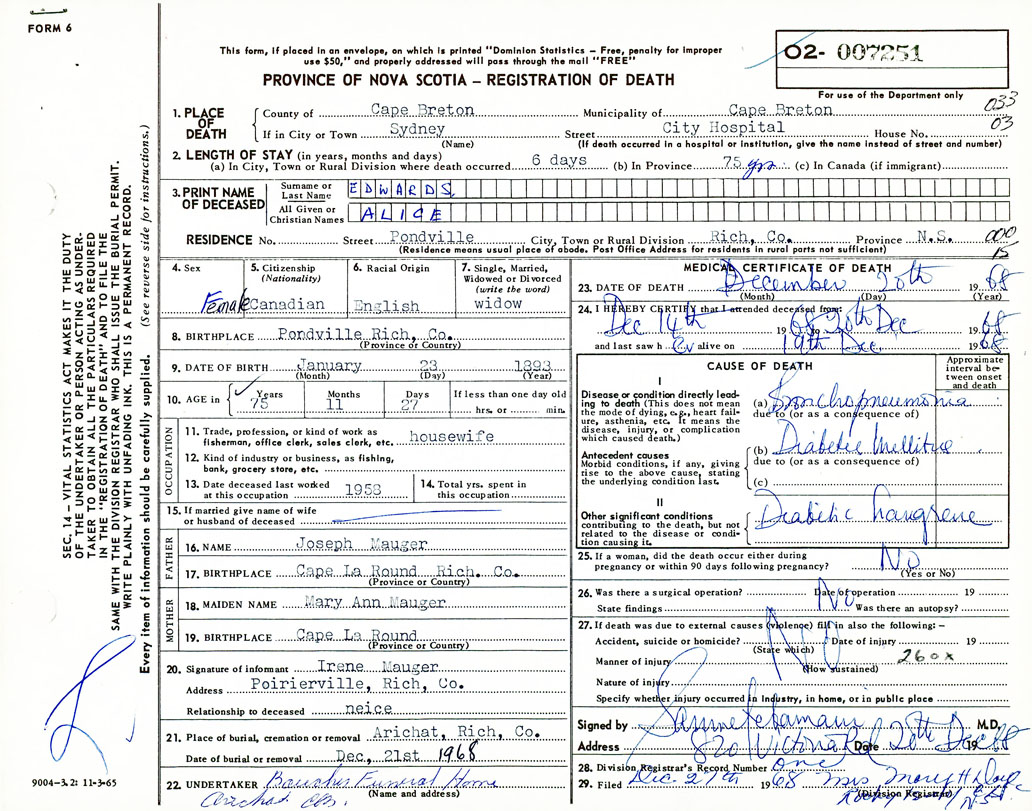 FORM 6
This form, if placed in an envelope, on which is printed "Dominion Statistics – Free, penalty for improper
use $50," and properly addressed will pass through the mail "FREE"
PROVINCE OF NOVA SCOTIA – REGISTRATION OF DEATH
02- 007251
For use of the Department only
033
03
1. PLACE OF DEATH { County of Cape Breton Municipality of Cape Breton
If in City or Town Sydney Street City Hospital House No.
(Name) (If death occurred in a hospital or institution, give the name instead of street and number)
2. LENGTH OF STAY (in years, months and days)
(a) In City, Town or Rural Division where death occurred 6 days (b) In Province 75 yrs. (c) In Canada (if immigrant)
3. PRINT NAME OF DECEASED Surname or Last Name EDWARDS
All Given or Christian Names ALICE
RESIDENCE No. Street Pondville City, Town or Rural Division Rich, Co. Province N.S. 000
(Residence means usual place of abode. Post Office Address for residents in rural parts not sufficient) 15
4. Sex Female
5. Citizenship (Nationality) Canadian
6. Racial Origin English
7. Single, Married, Widowed or Divorced (write the word) widow
8. BIRTHPLACE Pondville Rich, Co.
(Province or Country)
9. DATE OF BIRTH January 23 1893
(Month) (Day) (Year)
10. AGE in { Years 75 Months 11 Days 27 If less than one day old hrs. or min.
OCCUPATION
11. Trade, profession, or kind of work as fisherman, office clerk, sales clerk, etc. housewife
12. Kind of industry or business, as fishing, bank, grocery store, etc.
13. Date deceased last worked at this occupation 1958
14. Total yrs. spent in this occupation
15. If married give name of wife or husband of deceased
FATHER
16. NAME Joseph Mauger
17. BIRTHPLACE Cape La Round Rich. Co.
(Province or Country)
MOTHER
18. MAIDEN NAME Mary Ann Mauger
19. BIRTHPLACE Cape La Round
(Province or Country)
20. Signature of informant Irene Mauger
Address Poirierville, Rich, Co.
Relationship to deceased neice
21. Place of burial, cremation or removal Arichat, Rich, Co.
Date of burial or removal Dec, 21st 1968
22. UNDERTAKER Boucher Funeral Home
(Name and address)
Arichat
MEDICAL CERTIFICATE OF DEATH
23. DATE OF DEATH December 20th 1968
(Month) (Day) (Year)
24. I HEREBY CERTIFY that I attended deceased from:
Dec 14th 1968 20th Dec 1968
and last saw h er alive on 19th Dec 1968
CAUSE OF DEATH
Approximate interval between onset and death
I
Disease or condition directly leading to death (This does not mean the mode of dying, e.g., heart failure, asthenia, etc. It means the disease, injury, or complication which caused death.)
(a) Bronchopneumonia
due to (or as a consequence of)
Antecedent causes
Morbid conditions, if any, giving rise to the above cause, stating the underlying condition last.
(b) Diabetic Mellitus
due to (or as a consequence of)
(c)
II
Other significant conditions contributing to the death, but not related to the disease or condition causing it.
Diabetic Gangrene
25. If a woman, did the death occur either during pregnancy or within 90 days following pregnancy? NO
(Yes or No)
26. Was there a surgical operation? No Date of operation 19
State findings Was there an autopsy?
27. If death was due to external causes (violence) fill in also the following: –
NO
Accident, suicide or homicide? Date of injury 19
(State which)
Manner of injury 260x
(How sustained)
Nature of injury
Specify whether injury occurred in industry, in home, or in public place
Signed by M.D.
Address 820 Victoria Rd Date 20th Dec 1968
28. Division Registrar's Record Number One
29. Filed Dec. 27th 1968 Mrs Mary H
(Division Registrar)
SEC. 14 – VITAL STATISTICS ACT MAKES IT THE DUTY
OF THE UNDERTAKER OR PERSON ACTING AS UNDER-
TAKER TO OBTAIN ALL THE PARTICULARS REQUIRED
IN THE "REGISTRATION OF DEATH" AND TO FILE THE
SAME WITH THE DIVISION REGISTRAR WHO SHALL ISSUE THE BURIAL PERMIT.
WRITE PLAINLY WITH UNFADING INK. THIS IS A PERMANENT RECORD.
Every item of information should be carefully supplied. (See reverse side for instructions.)
9004-3.2: 11-3-65